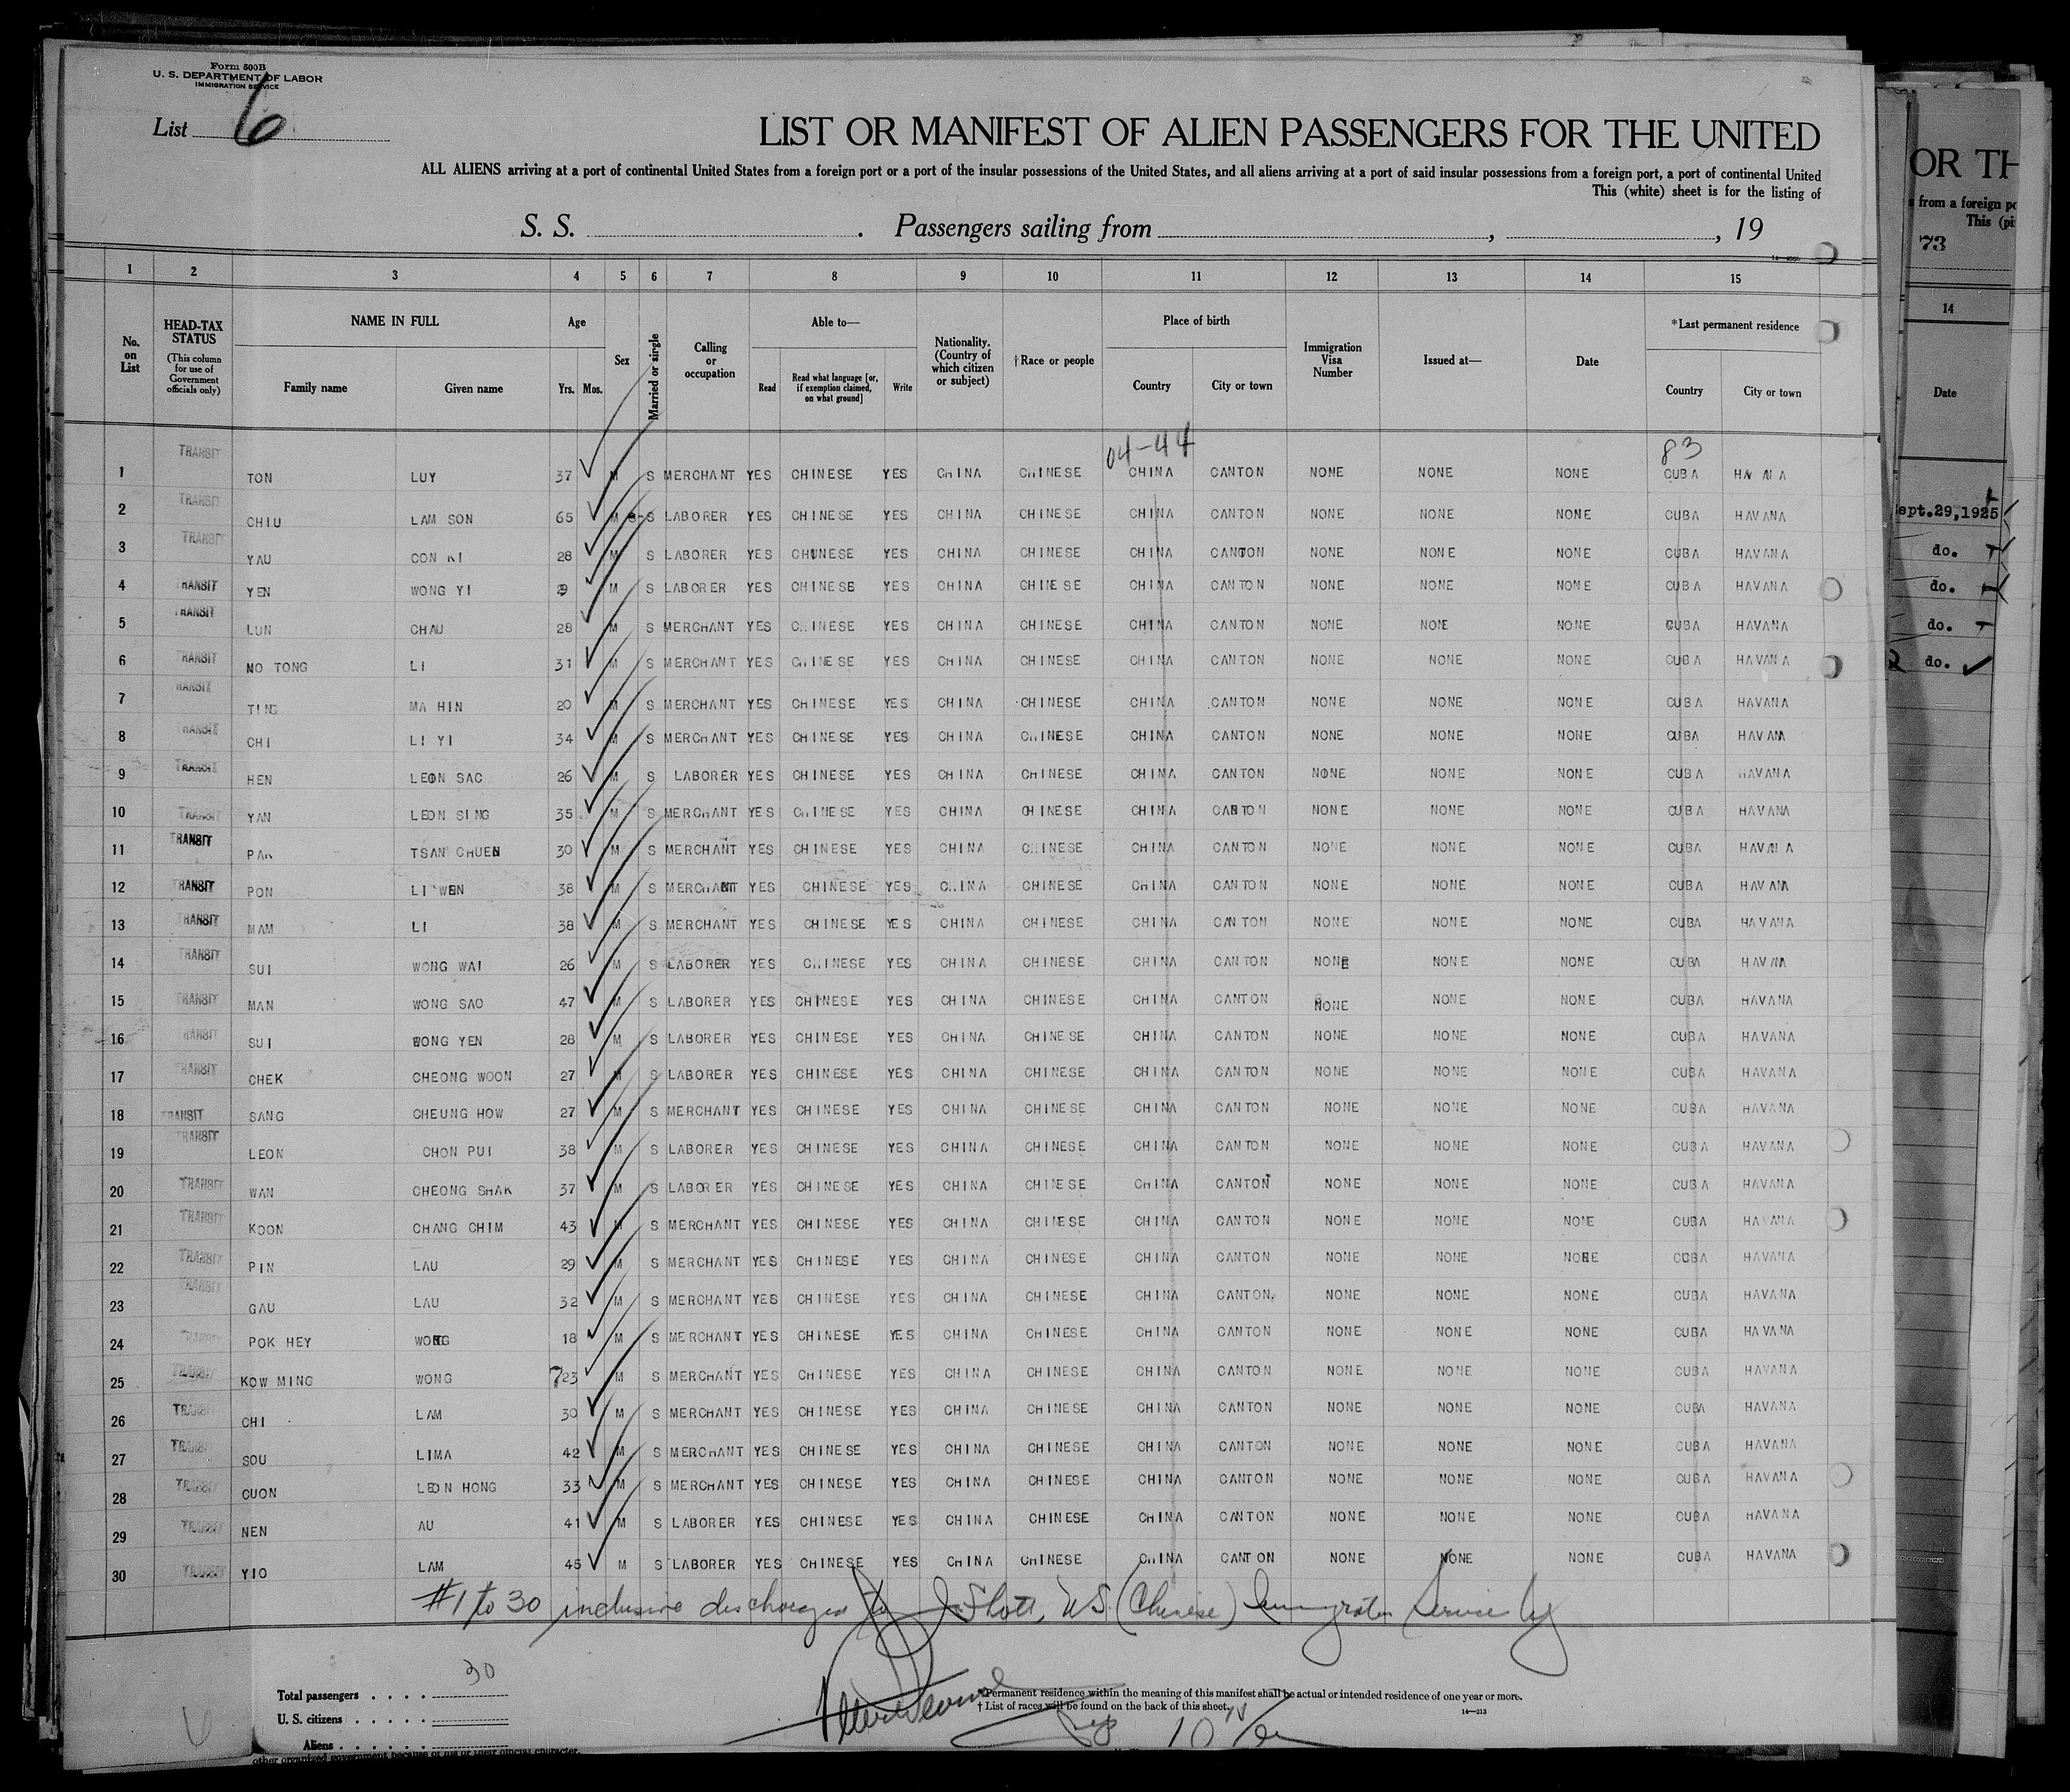 Form 500B
U. S. DEPARTMENT OF LABOR
IMMIGRATION SERVICE
List 6
LIST OR MANIFEST OF ALIEN PASSENGERS FOR THE UNITED
ALL ALIENS arriving at a port of continental United States from a foreign port or a port of the insular possessions of the United States, and all aliens arriving at a port of said insular possessions from a foreign port, a port of continental United
This (white) sheet is for the listing of
S. S. . Passengers sailing from , , 19
1 2 3 4 5 6 7 8 9 10 11 12 13 14 15
No. on List HEAD-TAX STATUS (This column for use of Government officials only) NAME IN FULL Family name Given name Age Yrs. Mos. Sex Married or single Calling or occupation Able to— Read Read what language [or, if exemption claimed, on what ground] Write Nationality. (Country of which citizen or subject) † Race or people Place of birth Country City or town Immigration Visa Number Issued at— Date *Last permanent residence Country City or town
04-44 83
1 TRANSIT TON LUY 37 M S MERCHANT YES CHINESE YES CHINA CHINESE CHINA CANTON NONE NONE NONE CUBA HAVANA
2 TRANSIT CHIU LAM SON 65 M S LABORER YES CHINESE YES CHINA CHINESE CHINA CANTON NONE NONE NONE CUBA HAVANA
3 TRANSIT YAU CON KI 28 M S LABORER YES CHUNESE YES CHINA CHINESE CHINA CANTON NONE NONE NONE CUBA HAVANA
4 TRANSIT YEN WONG YI M S LABORER YES CHINESE YES CHINA CHINESE CHINA CANTON NONE NONE NONE CUBA HAVANA
5 TRANSIT LUN CHAU 28 M S MERCHANT YES CHINESE YES CHINA CHINESE CHINA CANTON NONE NONE NONE CUBA HAVANA
6 TRANSIT NO TONG LI 31 M S MERCHANT YES CHINESE YES CHINA CHINESE CHINA CANTON NONE NONE NONE CUBA HAVANA
7 TRANSIT TING MA HIN 20 M S MERCHANT YES CHINESE YES CHINA CHINESE CHINA CANTON NONE NONE NONE CUBA HAVANA
8 TRANSIT CHI LI YI 34 M S MERCHANT YES CHINESE YES CHINA CHINESE CHINA CANTON NONE NONE NONE CUBA HAVANA
9 TRANSIT HEN LEON SAC 26 M S LABORER YES CHINESE YES CHINA CHINESE CHINA CANTON NONE NONE NONE CUBA HAVANA
10 TRANSIT YAN LEON SING 35 M S MERCHANT YES CHINESE YES CHINA CHINESE CHINA CANTON NONE NONE NONE CUBA HAVANA
11 TRANSIT PAK TSAN CHUEN 30 M S MERCHANT YES CHINESE YES CHINA CHINESE CHINA CANTON NONE NONE NONE CUBA HAVANA
12 TRANSIT PON LI WEN 38 M S MERCHANT YES CHINESE YES CHINA CHINESE CHINA CANTON NONE NONE NONE CUBA HAVANA
13 TRANSIT MAM LI 38 M S MERCHANT YES CHINESE YES CHINA CHINESE CHINA CANTON NONE NONE NONE CUBA HAVANA
14 TRANSIT SUI WONG WAI 26 M S LABORER YES CHINESE YES CHINA CHINESE CHINA CANTON NONE NONE NONE CUBA HAVANA
15 TRANSIT MAN WONG SAO 47 M S LABORER YES CHINESE YES CHINA CHINESE CHINA CANTON NONE NONE NONE CUBA HAVANA
16 TRANSIT SUI WONG YEN 28 M S LABORER YES CHINESE YES CHINA CHINESE CHINA CANTON NONE NONE NONE CUBA HAVANA
17 TRANSIT CHEK CHEONG WOON 27 M S LABORER YES CHINESE YES CHINA CHINESE CHINA CANTON NONE NONE NONE CUBA HAVANA
18 TRANSIT SANG CHEUNG HOW 27 M S MERCHANT YES CHINESE YES CHINA CHINESE CHINA CANTON NONE NONE NONE CUBA HAVANA
19 TRANSIT LEON CHON PUI 38 M S LABORER YES CHINESE YES CHINA CHINESE CHINA CANTON NONE NONE NONE CUBA HAVANA
20 TRANSIT WAN CHEONG SHAK 37 M S LABORER YES CHINESE YES CHINA CHINESE CHINA CANTON NONE NONE NONE CUBA HAVANA
21 TRANSIT KOON CHANG CHIM 43 M S MERCHANT YES CHINESE YES CHINA CHINESE CHINA CANTON NONE NONE NONE CUBA HAVANA
22 TRANSIT PIN LAU 29 M S MERCHANT YES CHINESE YES CHINA CHINESE CHINA CANTON NONE NONE NONE CUBA HAVANA
23 TRANSIT GAU LAU 32 M S MERCHANT YES CHINESE YES CHINA CHINESE CHINA CANTON NONE NONE NONE CUBA HAVANA
24 TRANSIT POK HEY WONG 18 M S MERCHANT YES CHINESE YES CHINA CHINESE CHINA CANTON NONE NONE NONE CUBA HAVANA
25 TRANSIT KOW MING WONG 23 M S MERCHANT YES CHINESE YES CHINA CHINESE CHINA CANTON NONE NONE NONE CUBA HAVANA
26 TRANSIT CHI LAM 30 M S MERCHANT YES CHINESE YES CHINA CHINESE CHINA CANTON NONE NONE NONE CUBA HAVANA
27 TRANSIT SOU LIMA 42 M S MERCHANT YES CHINESE YES CHINA CHINESE CHINA CANTON NONE NONE NONE CUBA HAVANA
28 TRANSIT CUON LEON HONG 33 M S MERCHANT YES CHINESE YES CHINA CHINESE CHINA CANTON NONE NONE NONE CUBA HAVANA
29 TRANSIT NEN AU 41 M S LABORER YES CHINESE YES CHINA CHINESE CHINA CANTON NONE NONE NONE CUBA HAVANA
30 TRANSIT YIO LAM 45 M S LABORER YES CHINESE YES CHINA CHINESE CHINA CANTON NONE NONE NONE CUBA HAVANA
#1 to 30 inclusive discharged to U.S. (Chinese) Immigration Service by
Total passengers 30
U. S. citizens
Aliens
*Permanent residence within the meaning of this manifest shall be actual or intended residence of one year or more.
† List of races will be found on the back of this sheet.
14—213
other organized government because of his or their official character.
OR TH
from a foreign po
This (pi
73
14
Date
ept.29,1925
do.
do.
do.
do.